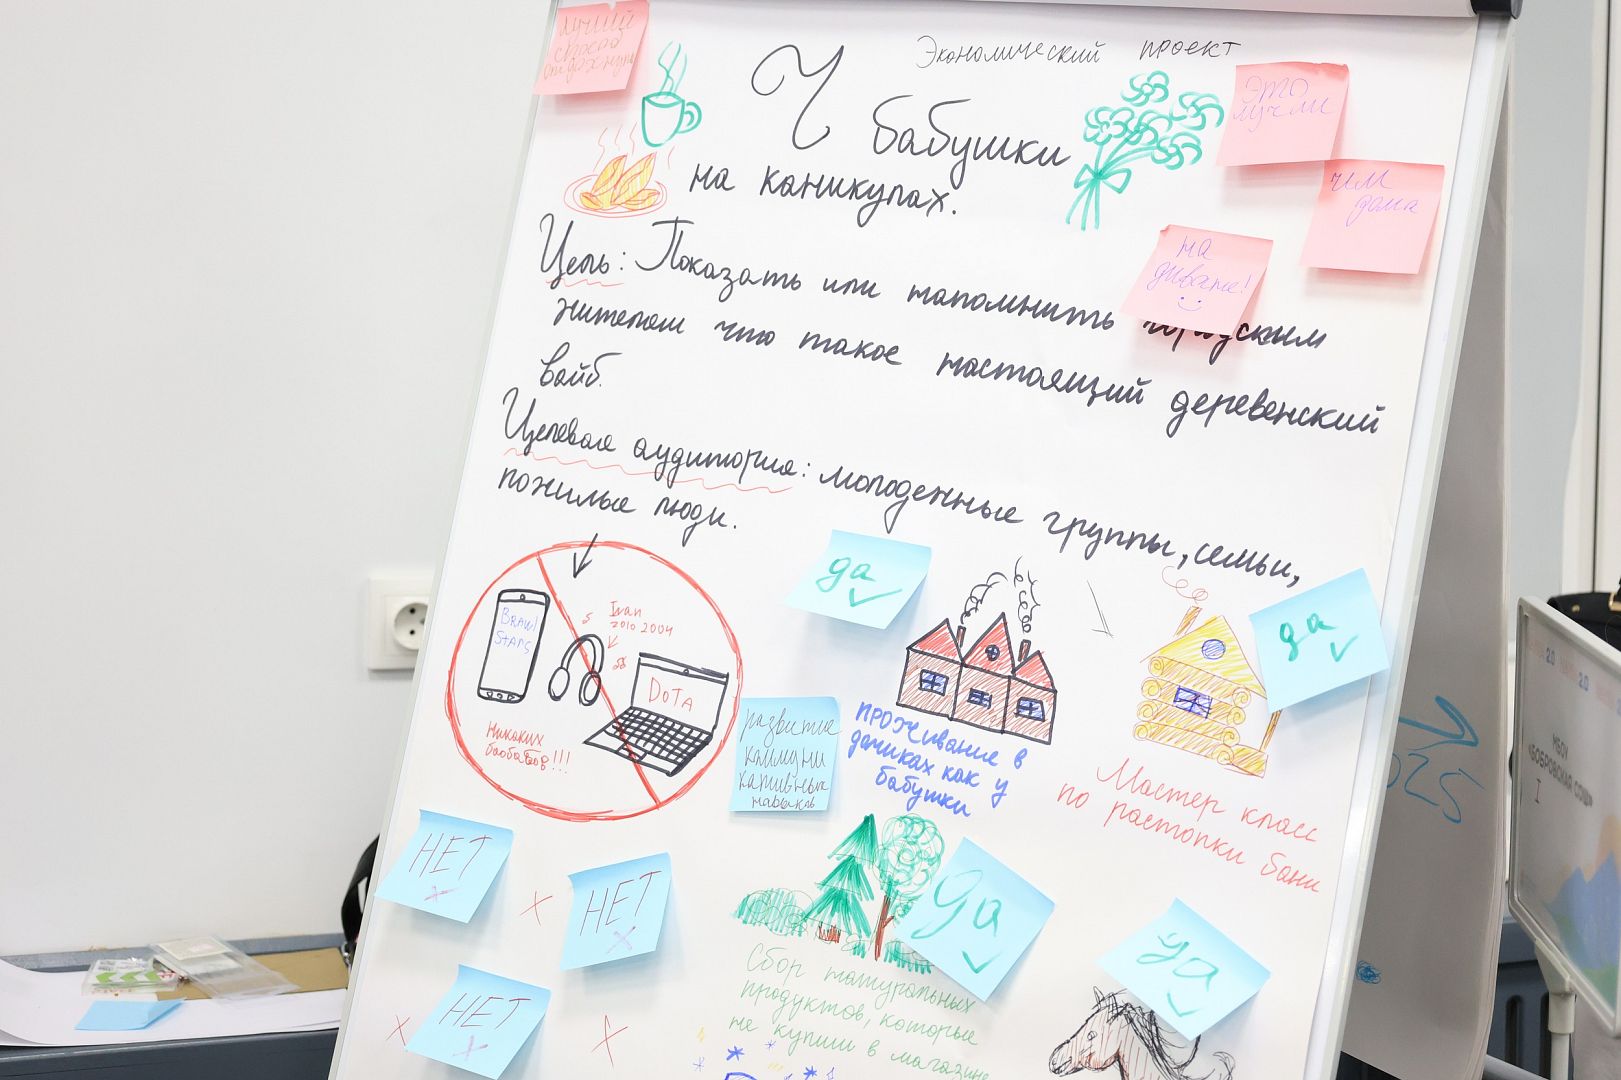 Экономический проект
лучший
способ
отдохнуть
У бабушки
на каникулах.
это
лучше
чем
дома
на
диване!
Цель: Показать или напомнить городским
жителям что такое настоящий деревенский
вайб.
Целевая аудитория: молодежные группы, семьи,
пожилые люди.
Brawl
Stars
Ivan
2010 2004
DOTA
Никаких
баобабов!!!
да
да
развитие
коммуни
кативных
навыков
проживание в
домиках как у
бабушки
Мастер класс
по растопки бани
НЕТ
НЕТ
НЕТ
да
да
Сбор натуральных
продуктов, которые
не купиш в магазине
МБОУ
«БОБРОВСКАЯ СОШ»
2.0
2.0